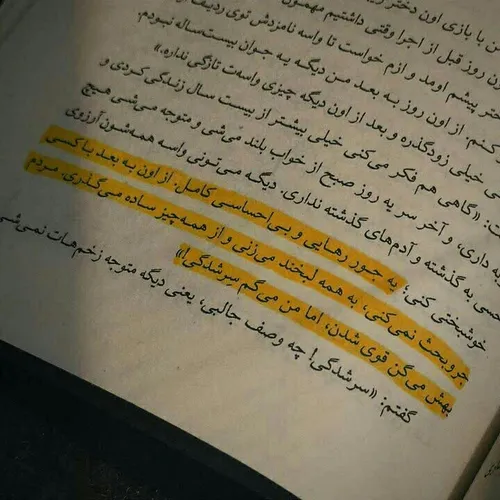 ن با بازی اون دختر
ن روز قبل از اجرا وقتی داشتیم
ختر پیشم اومد و ازم خواست تا واسه نامزدش توی ردیف
کنم. از اون روز به بعد من دیگه یه جوان بیست‌ساله نبودم.
ی خیلی زودگذره و بعد از اون دیگه چیزی واسه‌ت تازگی نداره.»
ت: «گاهی هم فکر می‌کنی خیلی بیشتر از بیست سال زندگی کردی و
داری، و آخر سر یه روز صبح از خواب بلند می‌شی و متوجه می‌شی هیچ
حسی به گذشته و آدم‌های گذشته نداری. دیگه می‌تونی واسه همه‌شون آرزوی
خوشبختی کنی؛ یه جور رهایی و بی‌احساسی کامل. از اون به بعد با کسی
جروبحث نمی‌کنی، به همه لبخند می‌زنی و از همه‌چیز ساده می‌گذری. مردم
بهش می‌گن قوی شدن، اما من می‌گم سِرشدگی!»
گفتم: «سرشدگی! چه وصف جالبی، یعنی دیگه متوجه زخم‌هات نمی‌شی